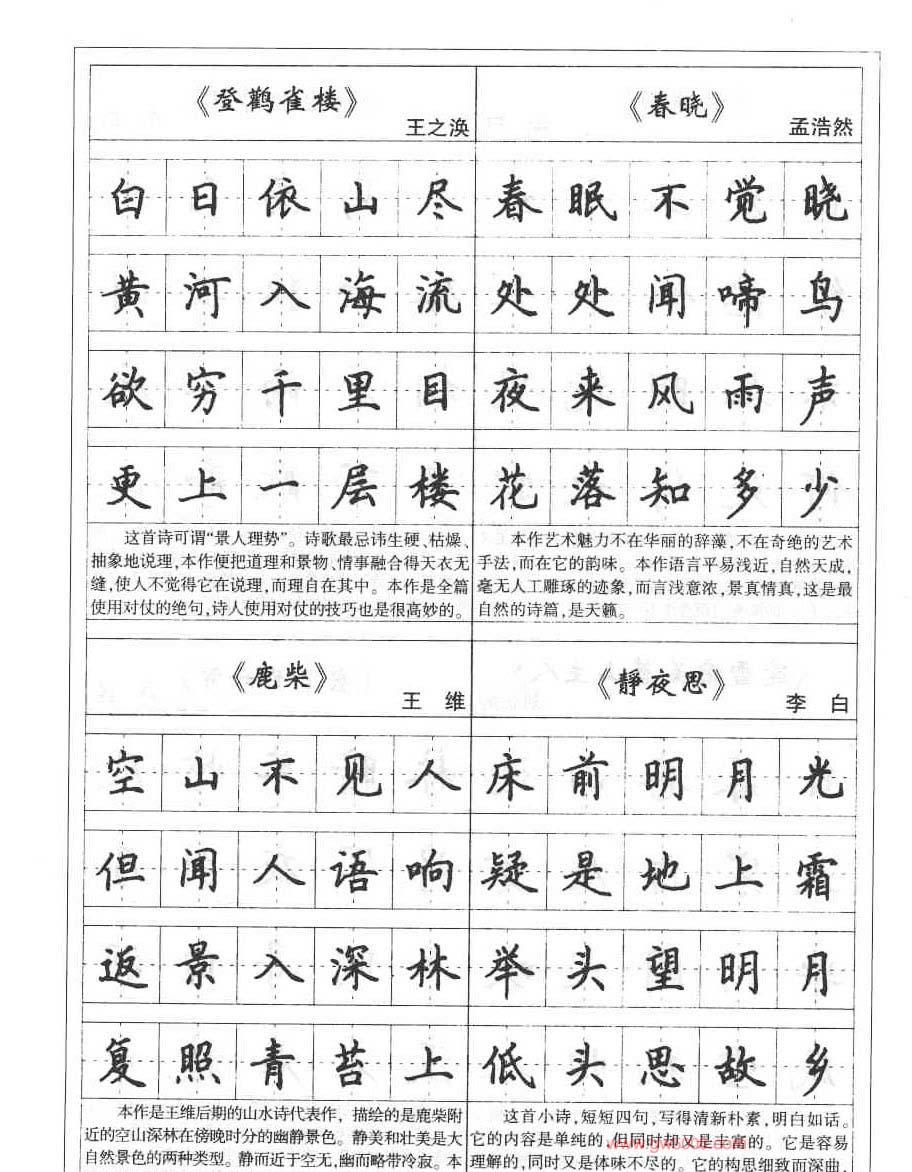 《登鹳雀楼》
王之涣
白日依山尽
黄河入海流
欲穷千里目
更上一层楼
这首诗可谓“景人理势”。诗歌最忌讳生硬、枯燥、
抽象地说理,本作便把道理和景物、情事融合得天衣无
缝,使人不觉得它在说理,而理自在其中。本作是全篇
使用对仗的绝句,诗人使用对仗的技巧也是很高妙的。
《春晓》
孟浩然
春眠不觉晓
处处闻啼鸟
夜来风雨声
花落知多少
本作艺术魅力不在华丽的辞藻,不在奇绝的艺术
手法,而在它的韵味。本作语言平易浅近,自然天成,
毫无人工雕琢的迹象,而言浅意浓,景真情真,这是最
自然的诗篇,是天籁。
《鹿柴》
王 维
空山不见人
但闻人语响
返景入深林
复照青苔上
本作是王维后期的山水诗代表作，描绘的是鹿柴附
近的空山深林在傍晚时分的幽静景色。静美和壮美是大
自然景色的两种类型。静而近于空无,幽而略带冷寂。本
《静夜思》
李 白
床前明月光
疑是地上霜
举头望明月
低头思故乡
这首小诗,短短四句,写得清新朴素,明白如话。
它的内容是单纯的,但同时却又是丰富的。它是容易
理解的,同时又是体味不尽的。它的构思细致而深曲,